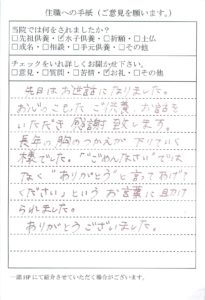 住職への手紙（ご意見を願います。）
当院では何をされましたか？
□先祖供養・☑水子供養・□祈願・□上仏
□成名・□相談・□手元供養・□その他
チェックをいれ詳しくお聞かせ下さい。
□意見・□質問・□苦情・☑お礼・□その他
先日はお世話になりました。
お心のこもったご供養、お話を
いただき感謝致します。
長年の胸のつかえが下りていく
様でした。"ごめんなさい"では
なく"ありがとう"と言ってあげて
ください」というお言葉に助け
られました。
ありがとうございました。
一部HPにて紹介させていただく場合がございます。